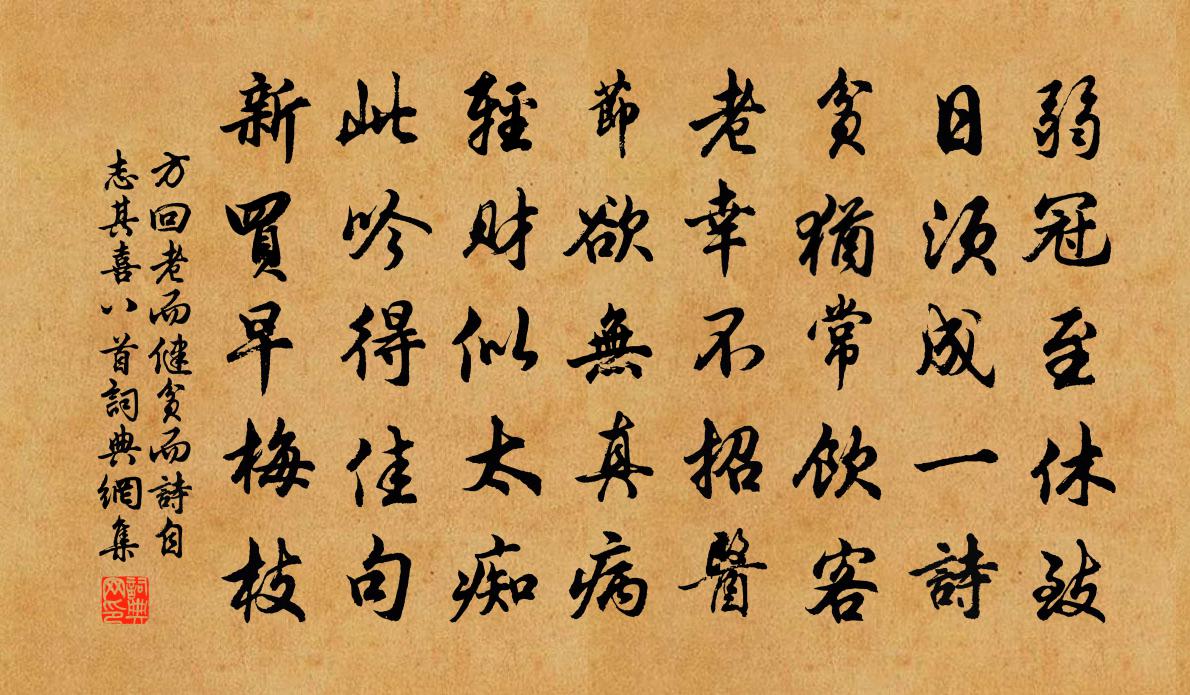 弱冠至休致
日須成一詩
貧猶常飲客
老幸不招醫
節欲無真病
輕財似太痴
此吟得佳句
新買早梅枝
方回老而健貧而詩自
志其喜八首詞典網集
詞典网印